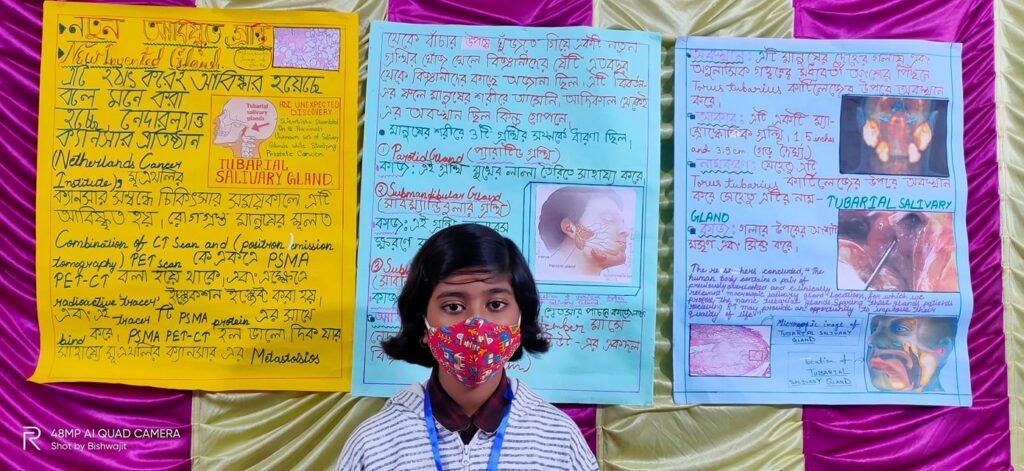 নতুন আবিষ্কৃত গ্রন্থি
New Invented Gland
এটি হঠাৎ করেই আবিষ্কার হয়েছে
বলে মনে করা
হচ্ছে নেদারল্যান্ড
ক্যানসার প্রতিষ্ঠান
(Netherlands Cancer
Institute), মূত্রথলির
ক্যানসার সম্বন্ধে চিকিৎসার সময়কালে এটি
আবিষ্কৃত হয়। রোগগ্রস্ত মানুষের মূলত
Combination of CT Scan and (positron emission
tomography) PET scan কে একত্রে PSMA
PET-CT বলা হয়ে থাকে। এবং এক্ষেত্রে
radioactive "tracer" ইঞ্জেকশন ইঞ্জেক্ট করা হয়।
এবং এই tracer টি PSMA protein এর সাথে
bind করে। PSMA PET-CT হল ভালো দিক যার
সাহায্যে মূত্রথলির ক্যানসার এর Metastasis
Tubarial
salivary
glands
AN UNEXPECTED
DISCOVERY
Scientists Stumbled
On A Previously
Unknown Set of Salivary
Glands while Studying
Prostate Cancer.
TUBARIAL
SALIVARY GLAND
থেকে বাঁচার উপায় খুঁজতে গিয়ে একটি নতুন
গ্রন্থির খোঁজ পেলেন বিজ্ঞানীদের যেটি এতবছর
থেকে বিজ্ঞানীদের কাছে অজানা ছিল। এটি বিবর্তন-
এর ফলে মানুষের শরীরে আসেনি, আদিকাল থেকেই
এর অবস্থান ছিল কিন্তু গোপনে।
মানুষের শরীরে 3টি গ্রন্থির সম্পর্কে ধারণা ছিল।
① Parotid Gland (প্যারাটিড গ্রন্থি)
কাজ: এই গ্রন্থি মুখের লালা তৈরিতে সাহায্য করে।
② Submandibular Gland
(সাবম্যান্ডিবুলার গ্রন্থি)
কাজ: এই গ্রন্থি
ক্ষরণে
③ Sub
কাজ
Parotid gland
এটি মানুষের চোখের গলায় এবং
Torus tubarius কার্টিলেজের উপরে অবস্থান
করে।
আকার: এটি একটি ম্যা-
ক্রোস্কোপিক গ্রন্থি, 1.5 inches
and 3.9 cm (গড় দৈর্ঘ্য)।
নামকরণ: যেহেতু এটি
Torus tubarius কার্টিলেজের উপরে অবস্থান
করে সেহেতু এটির নাম- TUBARIAL SALIVARY
GLAND
কাজ: গলার উপরের অংশটি
মসৃণ এবং সিক্ত করে।
The researchers concluded, "The
human body contains a pair of
previously overlooked and clinically
relevant macroscopic salivary gland locations, for which we
propose the name tubarial glands. Sparing these glands patients
receiving RT may provide an opportunity to improve their
quality of life".
Microscopic image of
TUBARIAL SALIVARY
GLAND
Location of
TUBARIAL
SALIVARY GLAND
48MP AI QUAD CAMERA
Shot by Bishwajit